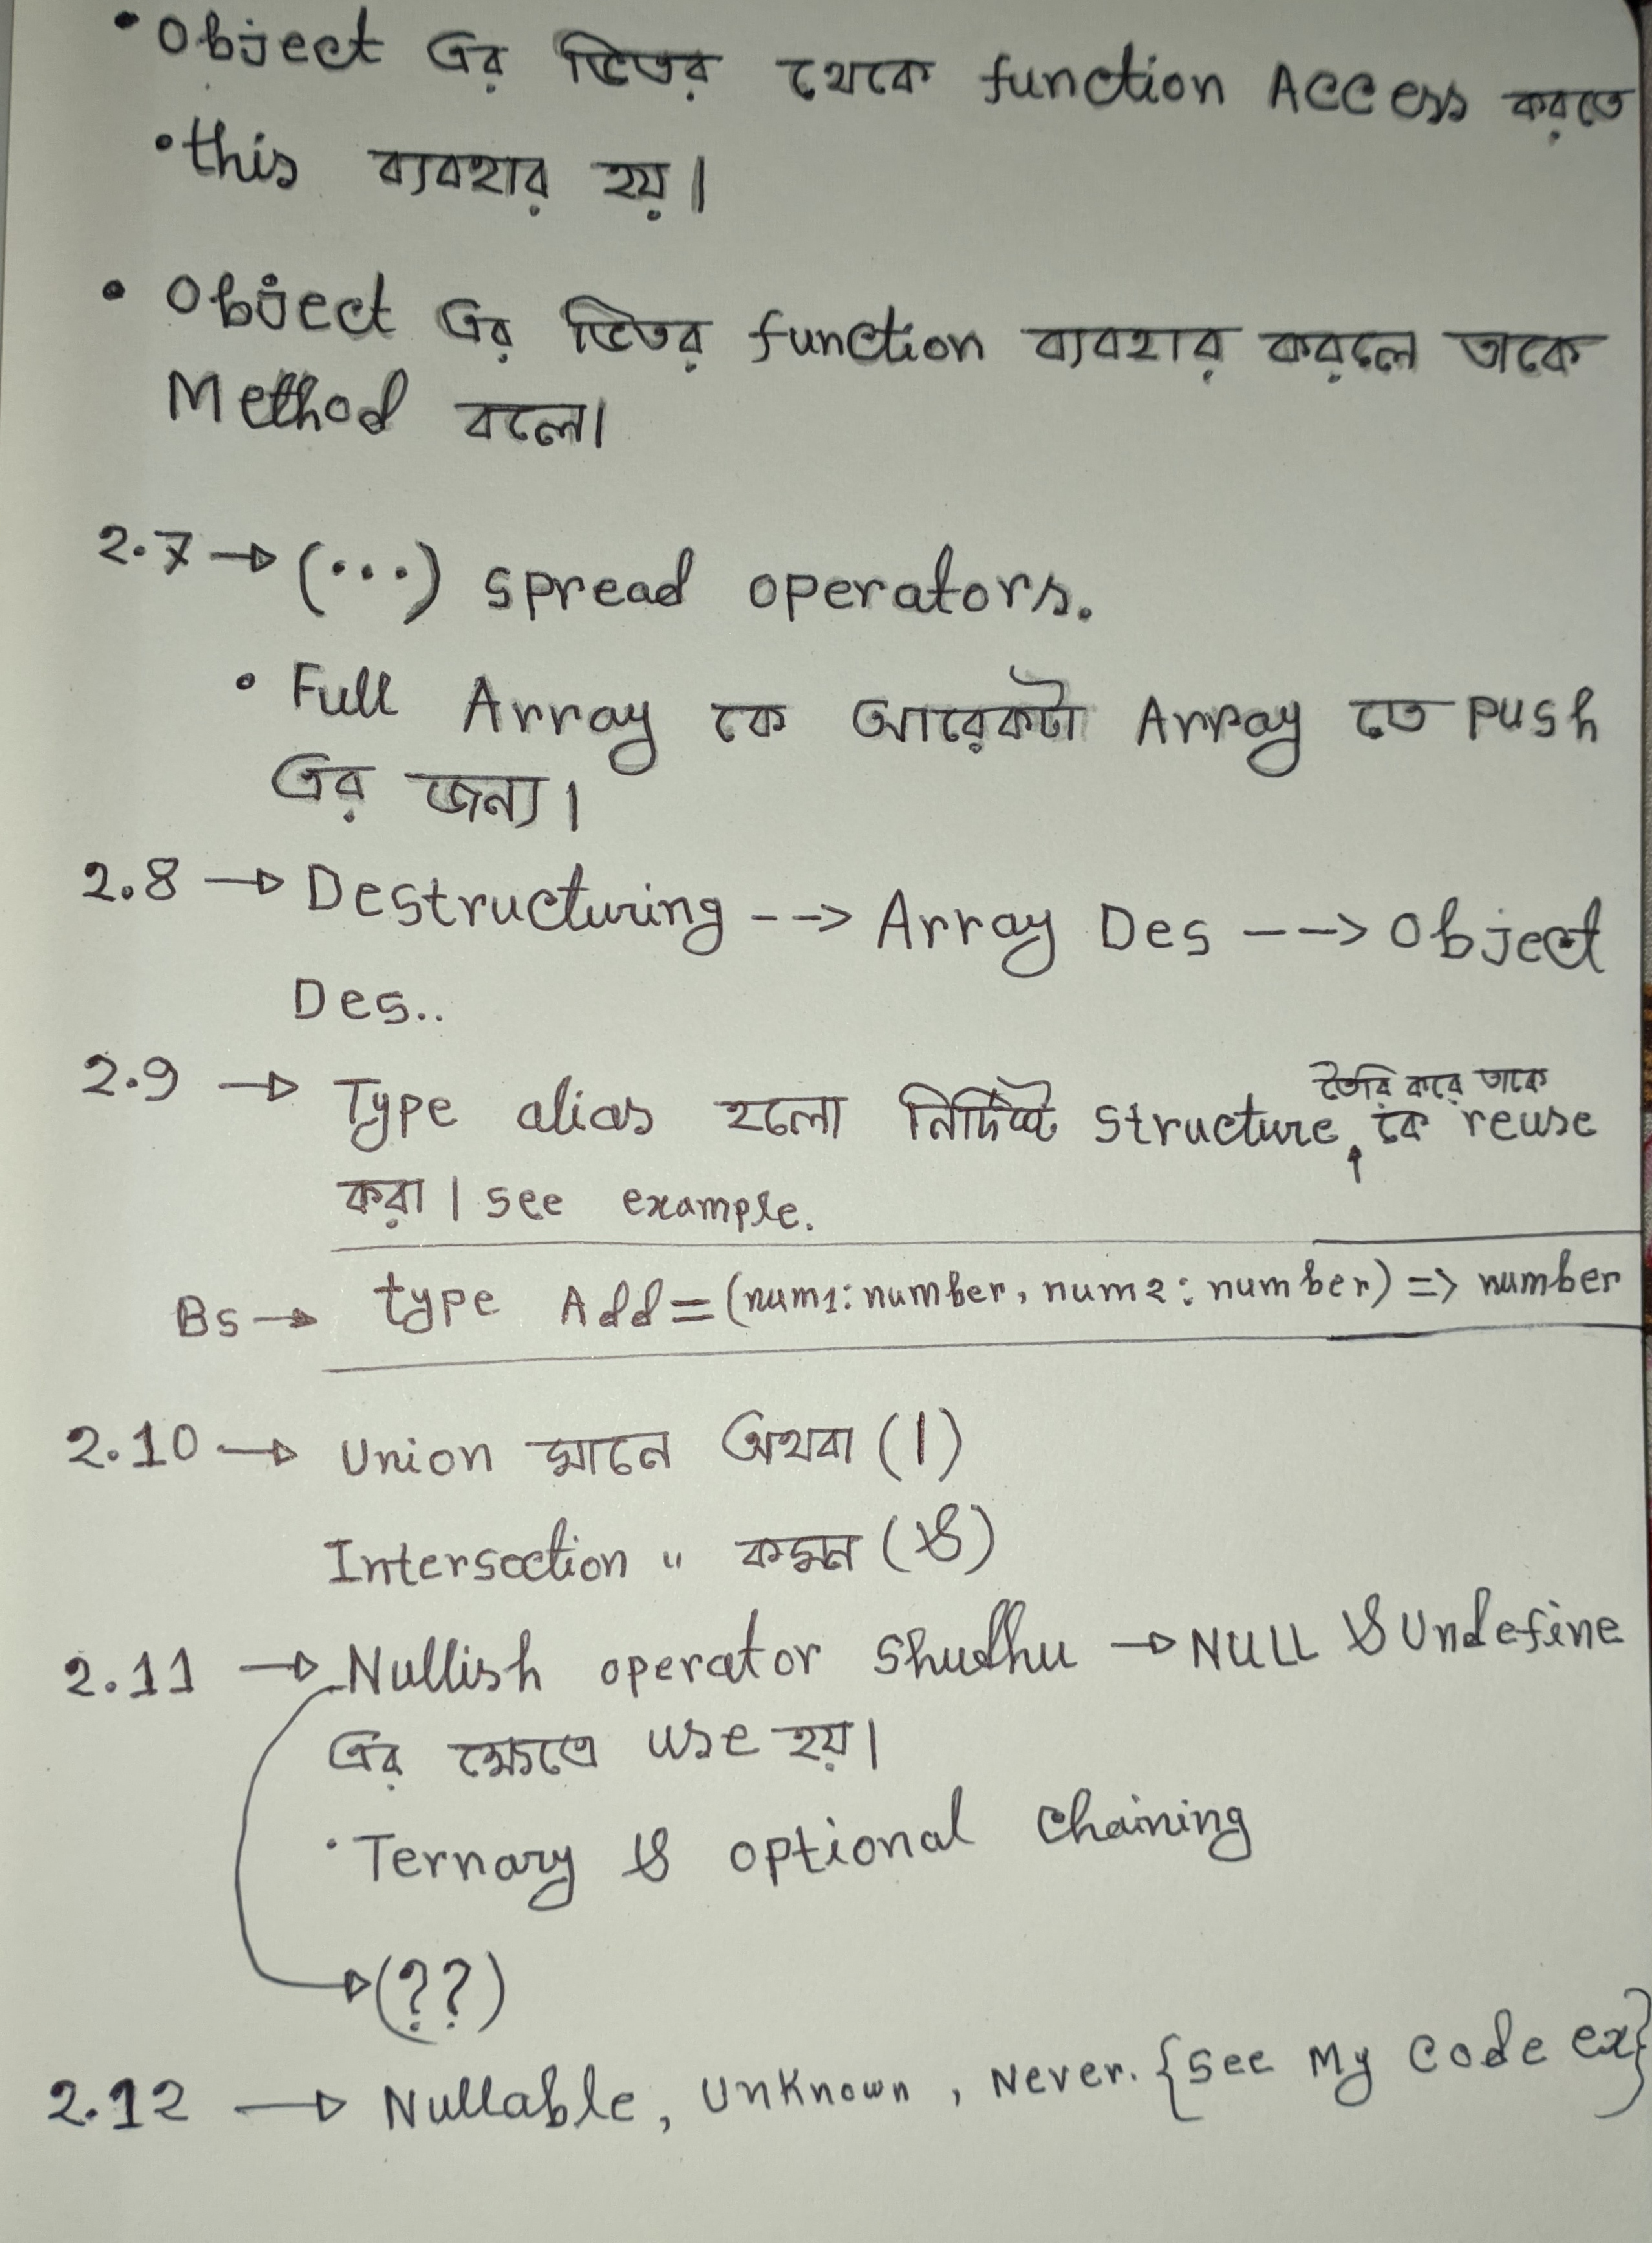 • Object এর ভিতর থেকে function Access করতে
• this ব্যবহার হয়।
• Object এর ভিতর function ব্যবহার করলে তাকে
Method বলে।
2.7 → (...) spread operators.
• Full Array কে আরেকটা Array তে push
এর জন্য।
2.8 → Destructuring --> Array Des --> Object
Des..
তৈরি করে তাকে
2.9 → Type alias হলো নির্দিষ্ট structure, কে reuse
করা। see example.
Bs → type Add = (num1: number, num2: number) => number
2.10 → Union মানে অথবা (|)
Intersection " কমন (&)
2.11 → Nullish operator shudhu → NULL & Undefine
এর ক্ষেত্রে use হয়।
• Ternary & optional chaining
→ (??)
2.12 → Nullable, Unknown, Never. {see My code ex}